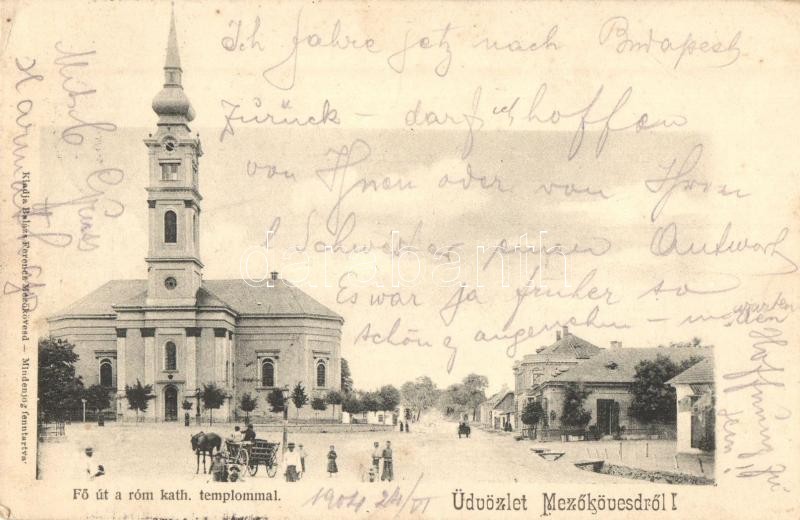 Ich fahre jetz nach Budapest
Zurück - darf ich hoffen
von Ihnen oder von Ihren
Schwester einen Antwort
Es war ja früher so
schön angenehm -
warten
Mit
Gruss
Kiadja Balázs Ferencz Mezőkövesd - Minden jog fenntartva
darabanth
Fő út a róm kath. templommal.
1904 24/VI
Üdvözlet Mezőkövesdről!